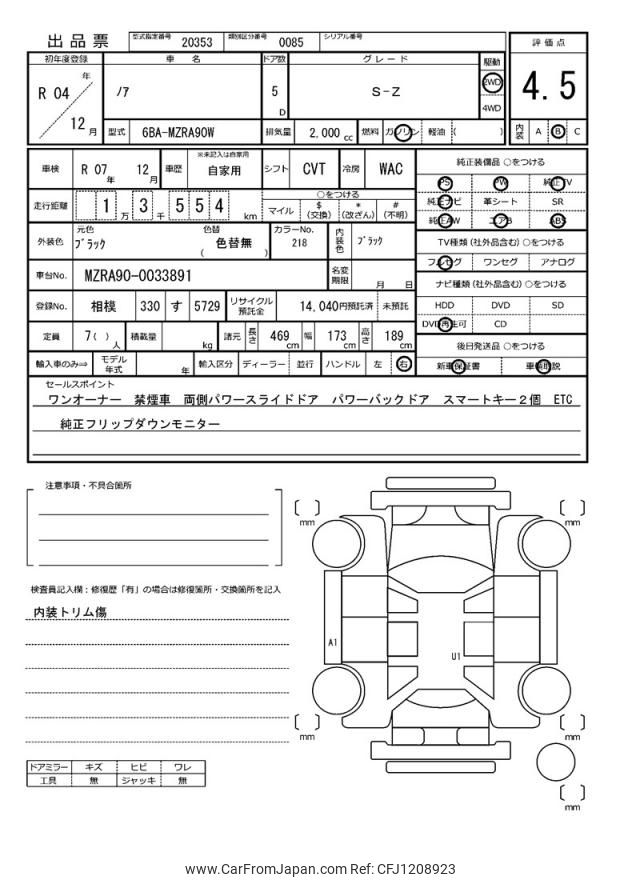 出品票 型式指定番号 20353 類別区分番号 0085 シリアル番号
評価点
4.5
内装 A B C
初年度登録 車名 ドア数 グレード 駆動
R 04 年 12 月 ﾉｱ 5 D S-Z 2WD 4WD
型式 6BA-MZRA90W 排気量 2,000 cc 燃料 ガソリン 軽油 ( )
車検 R 07 年 12 月 車歴 ※未記入は自家用 自家用 シフト CVT 冷房 WAC
走行距離 1 万 3 千 5 5 4 km ○をつける マイル $ (交換) * (改ざん) # (不明)
外装色 元色 ﾌﾞﾗｯｸ 色替 ( 色替無 ) カラーNo. 218 内装色 ﾌﾞﾗｯｸ
車台No. MZRA90-0033891 名変期限 月 日
登録No. 相模 330 す 5729 リサイクル預託金 14,040円預託済 未預託
定員 7( ) 人 積載量 kg 諸元 長さ 469 cm 幅 173 cm 高さ 189 cm
輸入車のみ⇒ モデル年式 年 輸入区分 ディーラー 並行 ハンドル 左 右
純正装備品 ○をつける
PS PW 純正TV
純正ナビ 革シート SR
純正AW エアB ABS
TV種類 (社外品含む) ○をつける
フルセグ ワンセグ アナログ
ナビ種類 (社外品含む) ○をつける
HDD DVD SD
DVD再生可 CD
後日発送品 ○をつける
新車保証書 車輌取説
セールスポイント
ワンオーナー 禁煙車 両側パワースライドドア パワーバックドア スマートキー２個 ETC
純正フリップダウンモニター
注意事項・不具合箇所
検査員記入欄：修復歴「有」の場合は修復箇所・交換箇所を記入
内装トリム傷
ドアミラー キズ ヒビ ワレ
工具 無 ジャッキ 無
[ ] mm
[ ] mm
A1
U1
[ ] mm
[ ] mm
[ ] mm
www.CarFromJapan.com Ref: CFJ1208923